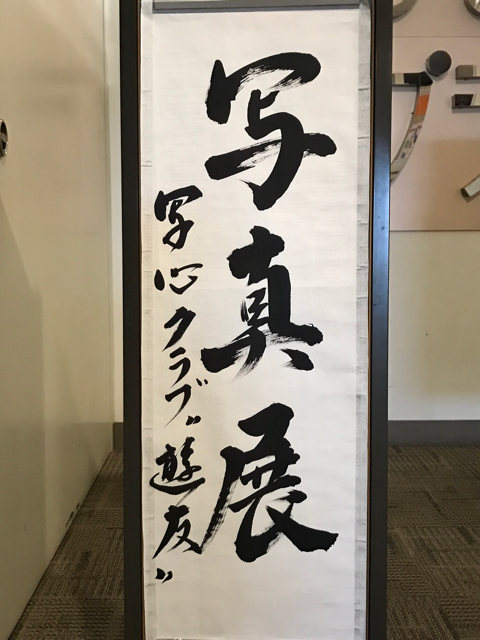 写真展
写心クラブ〝遊友〟